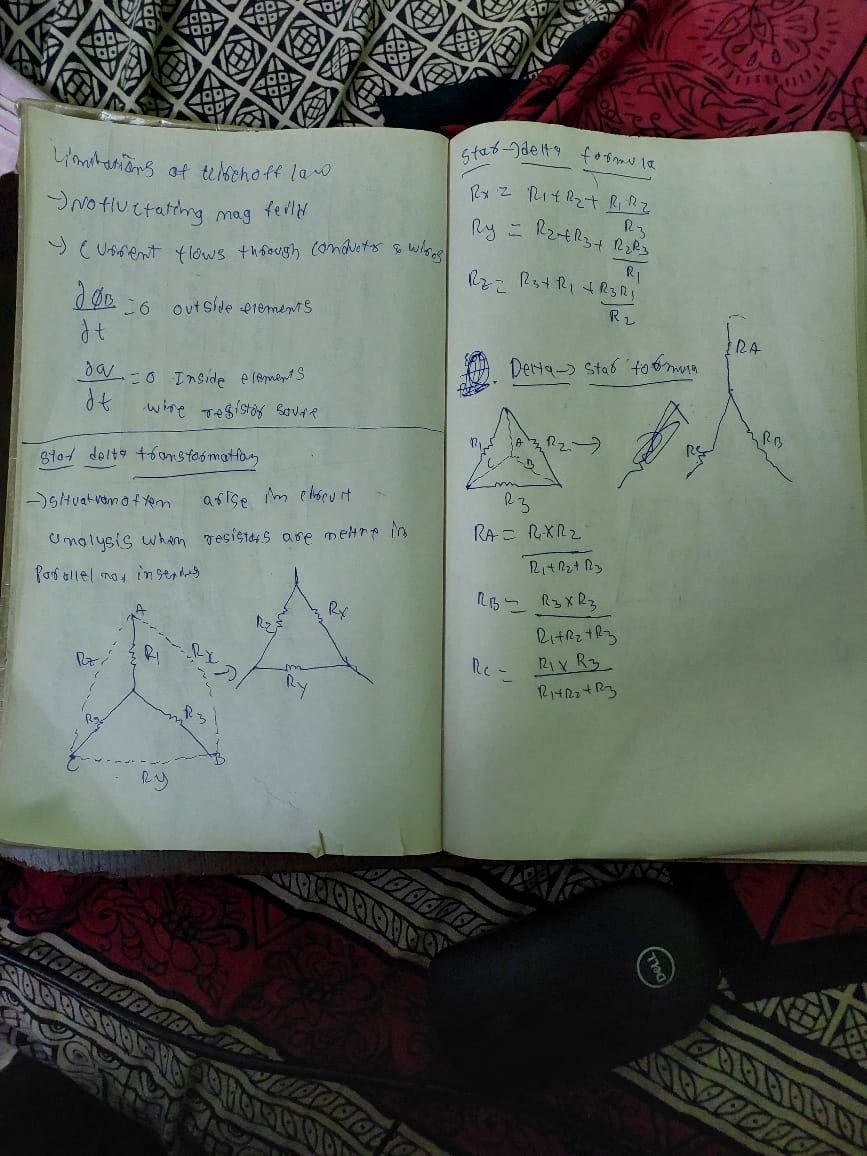 Limitations of kirchoff law
→ No fluctating mag feild
→ Current flows through conductor & wires
∂ØB/∂t = 0 outside elements
∂q/∂t = 0 Inside elements
wire resistor source
Star delta transformation
→ situation often arise in circuit
analysis when resistors are neither in
Parallel nor in series
A
Rz R1 Rx →
R2 R3
C B
Ry
Rz Rx
Ry
Star → delta formula
Rx = R1 + R2 + R1 R2/R3
Ry = R2 + R3 + R2R3/R1
Rz = R3 + R1 + R3R1/R2
Delta → star formula
R1 A R2 →
C B
R3
RA
RC RB
RA = R1 X R2/R1 + R2 + R3
RB = R3 X R3/R1 + R2 + R3
RC = R1 X R3/R1 + R2 + R3
DELL